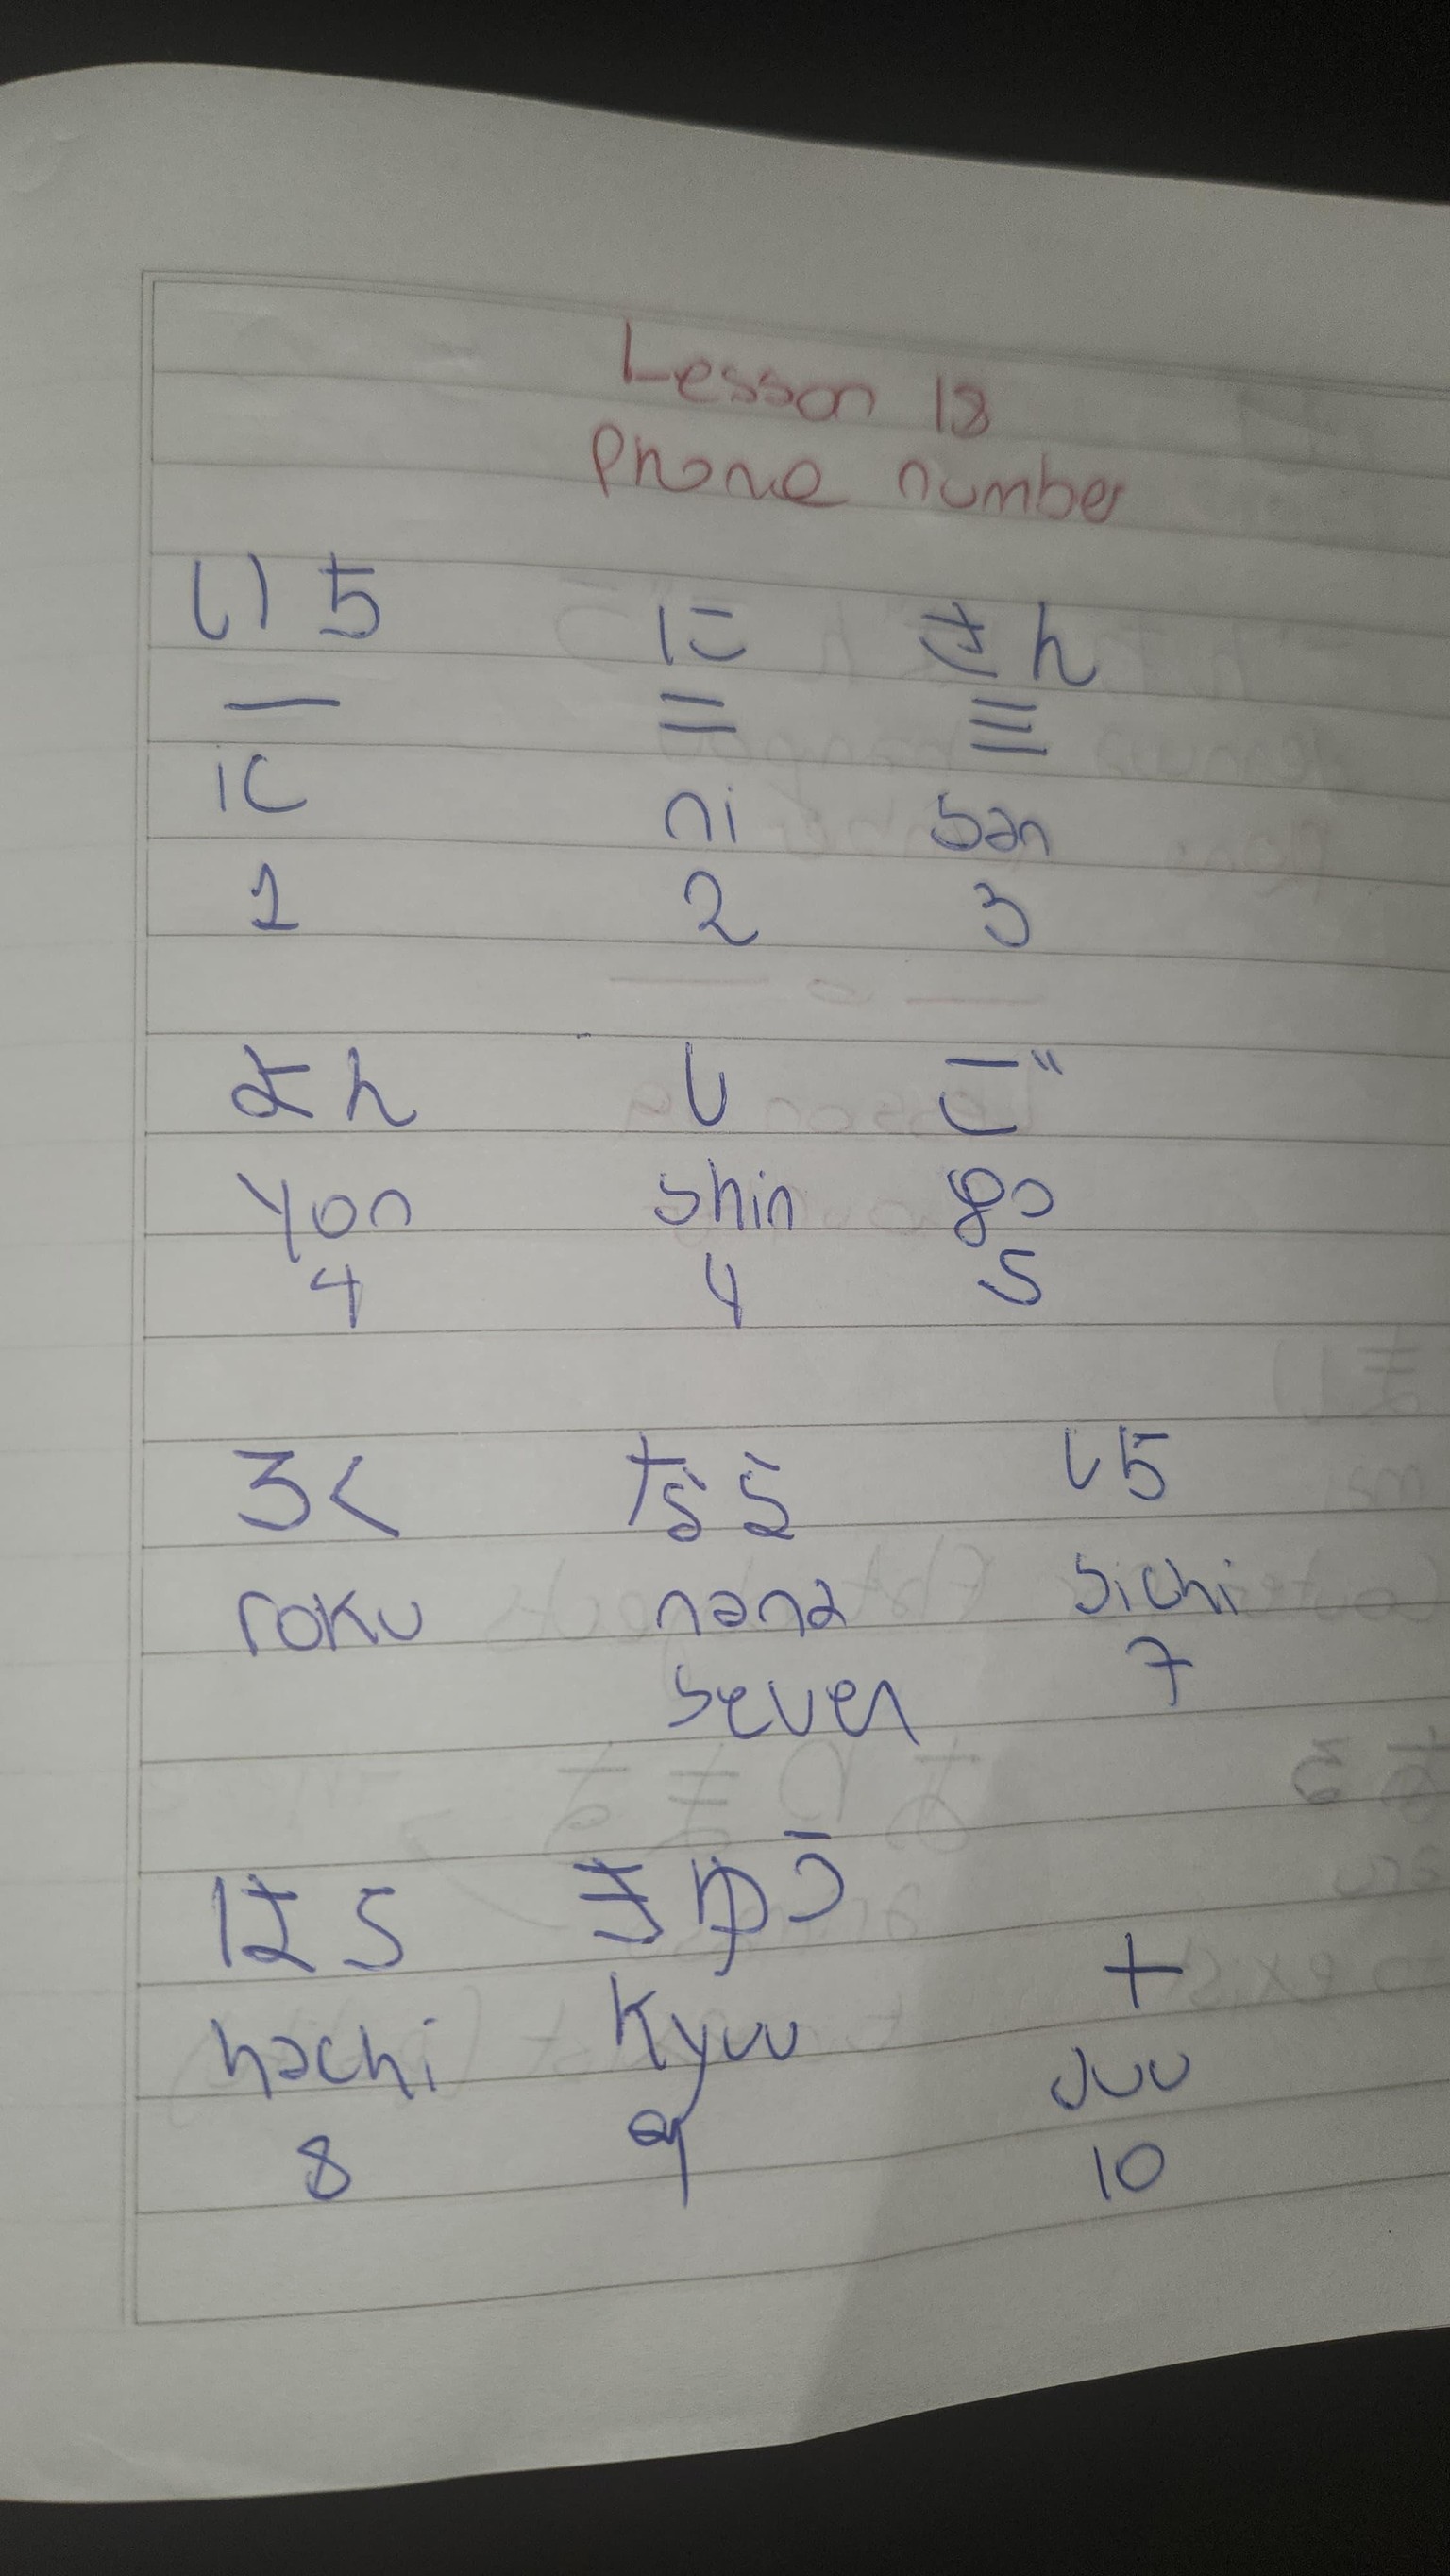 Lesson 18
Phone number
いち に さん
一 二 三
ic ni san
1 2 3
よん し ご
yon shin go
4 4 5
ろく なな しち
roku nana sichi
seven 7
はち きゅう 十
hachi kyuu Juu
8 9 10